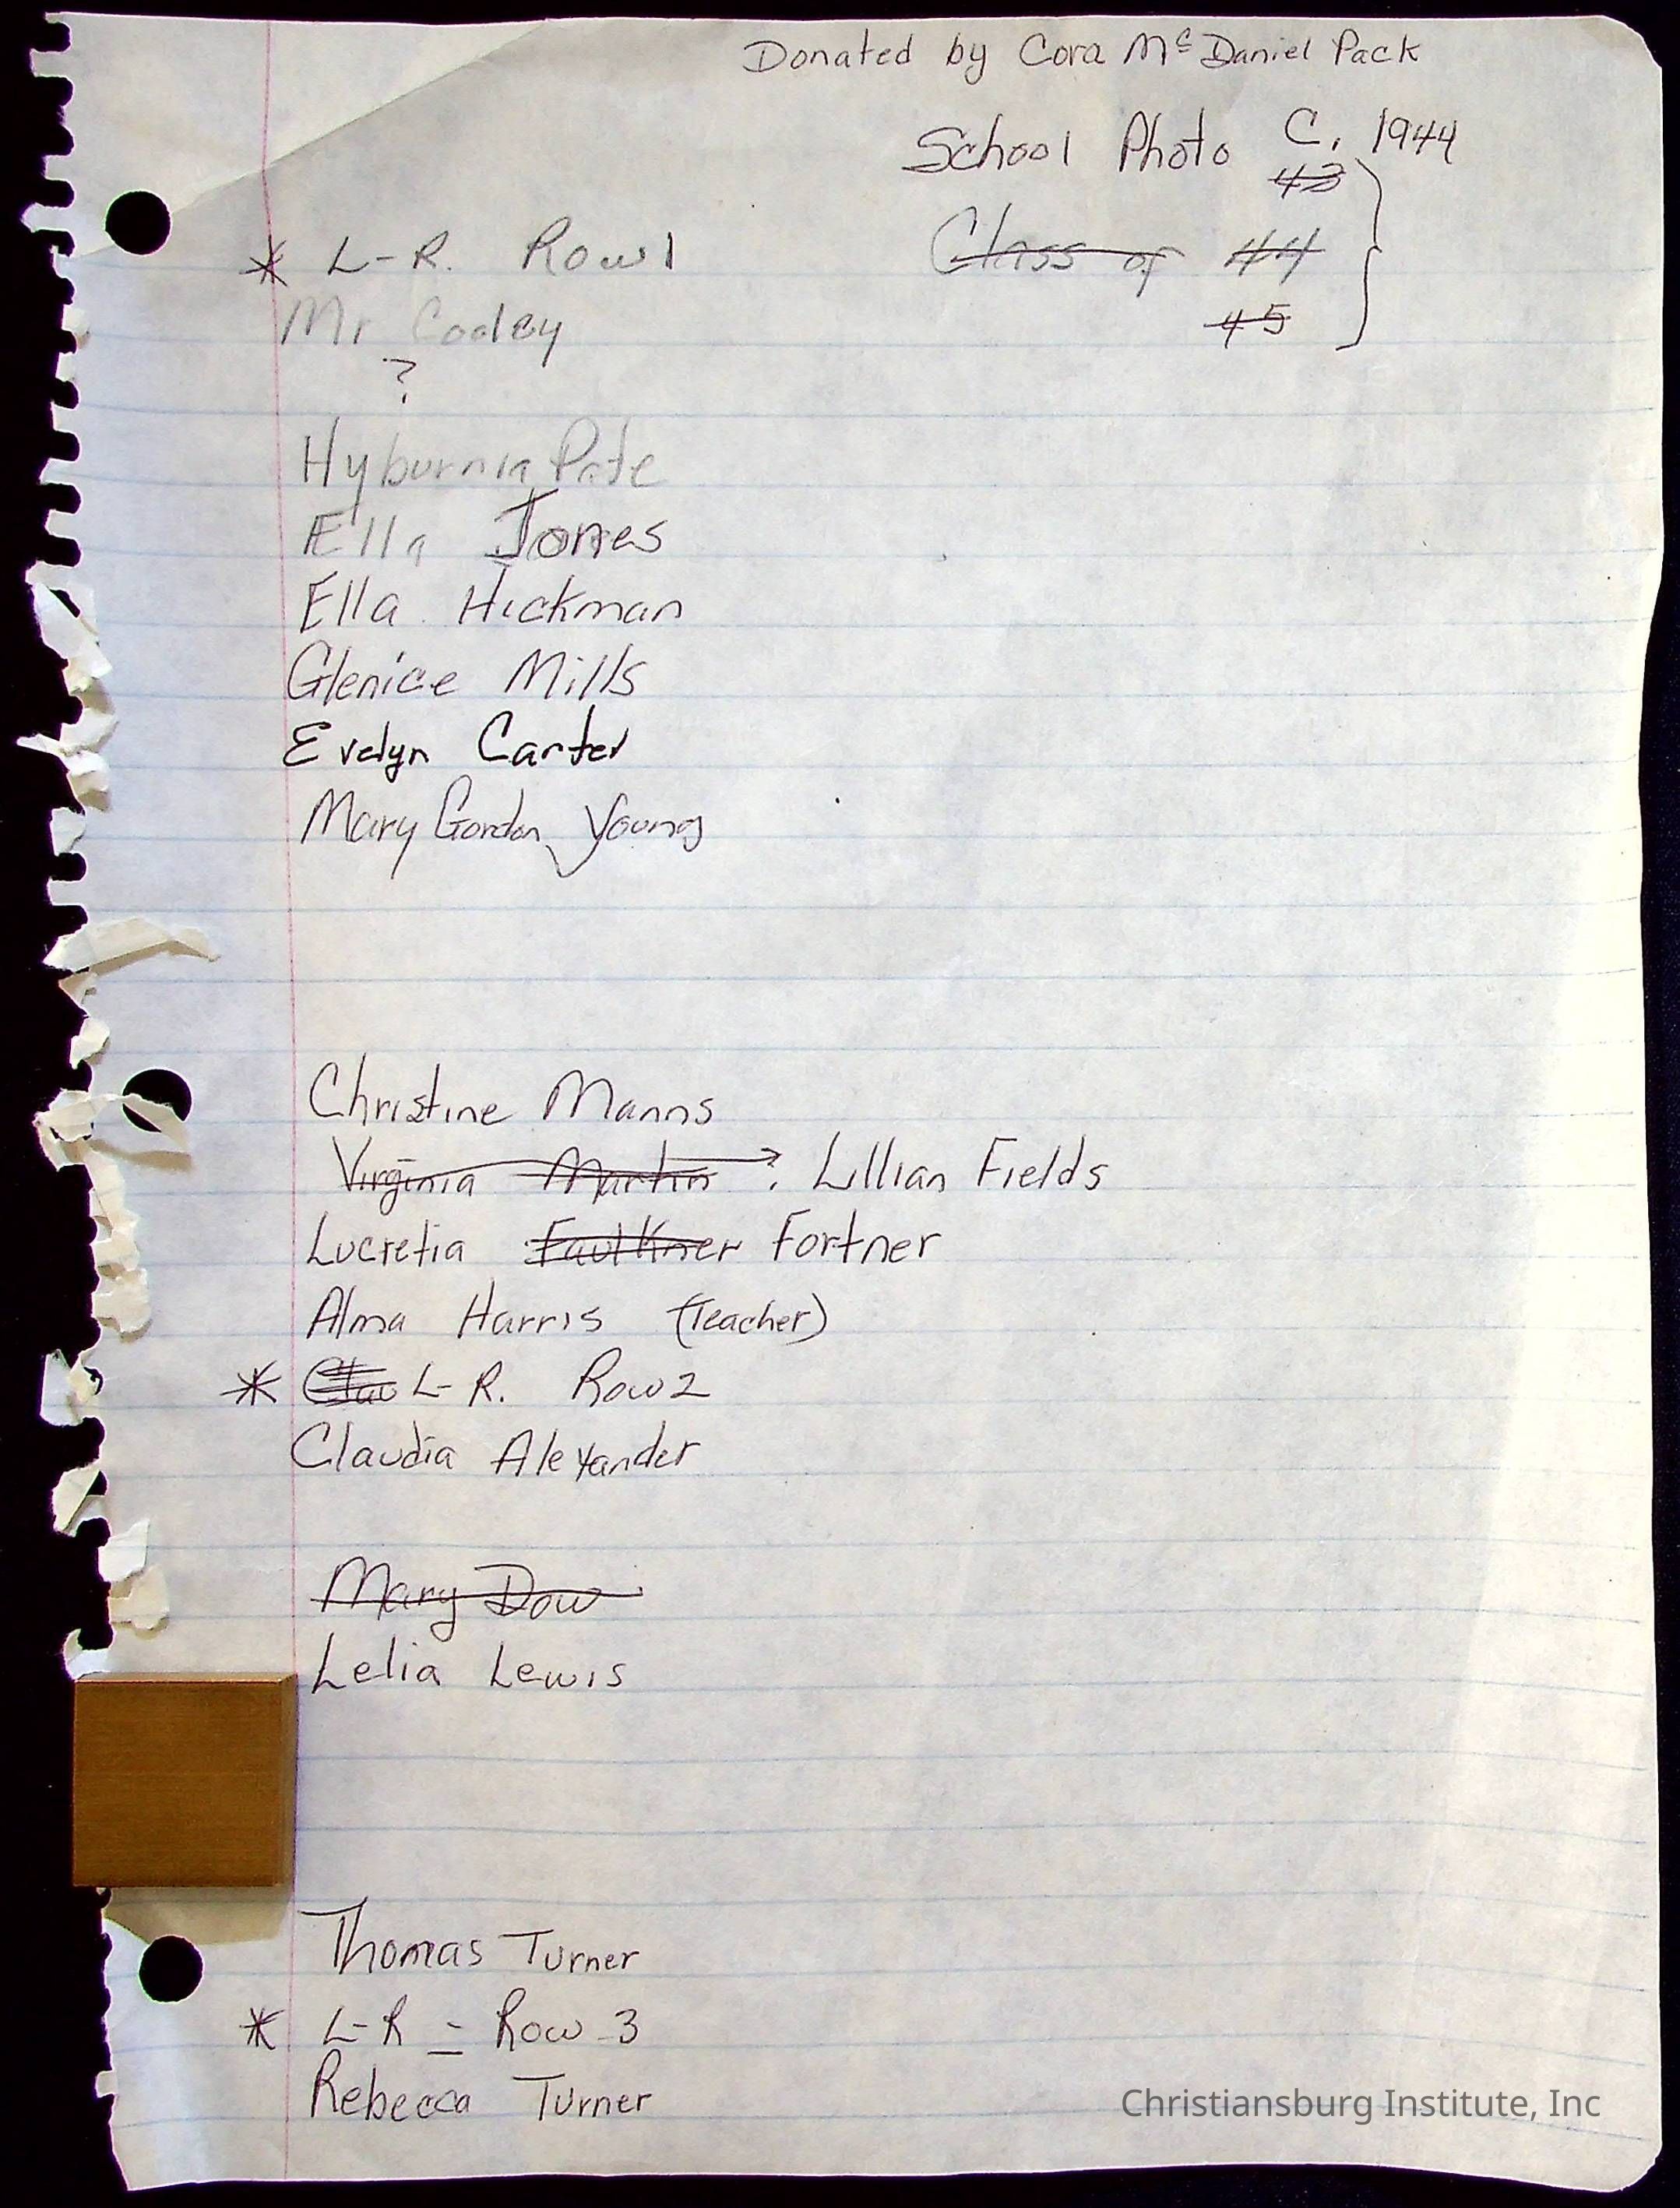 Donated by Cora McDaniel Pack
School Photo C. 1944
43
* L-R. Row 1
Class of 44
Mr Cooley
45
?
Hyburnia Pate
Ella Jones
Ella Hickman
Glenice Mills
Evelyn Carter
Mary Gordon Young
Christine Manns
Virginia Martin ? Lillian Fields
Lucretia Faulkner Fortner
Alma Harris (Teacher)
* Clau L-R. Row 2
Claudia Alexander
Mary Dow
Lelia Lewis
Thomas Turner
* L-R - Row 3
Rebecca Turner
Christiansburg Institute, Inc